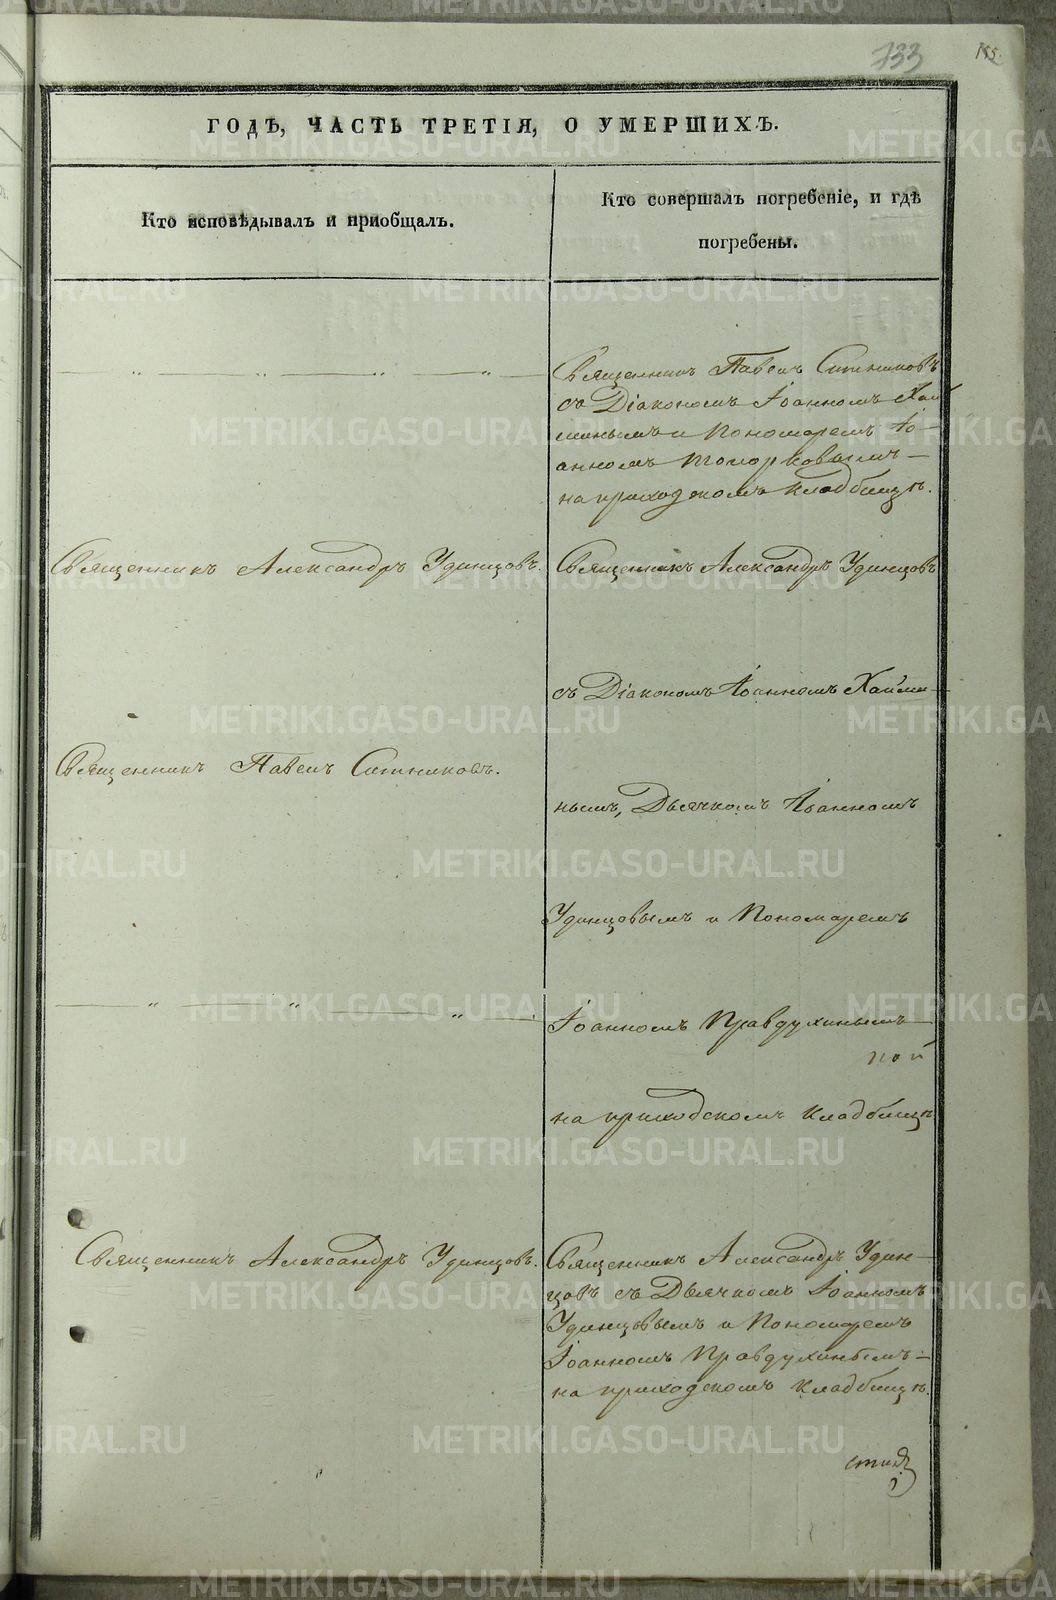 733
155.
ГОДЪ, ЧАСТЬ ТРЕТІЯ, О УМЕРШИХЪ.
Кто исповѣдывалъ и приобщалъ.
Кто совершалъ погребеніе, и гдѣ
погребены.
Священникъ Павелъ Ситниковъ
съ Діакономъ Іоанномъ Хай
минымъ и Пономаремъ Іо-
анномъ Топорковымъ
на приходскомъ кладбищѣ.
Священникъ Александръ Удинцовъ.
Священникъ Александръ Удинцовъ
съ Діакономъ Іоанномъ Хайми-
Священникъ Павелъ Ситниковъ.
нымъ, Дьячкомъ Іоанномъ
Удинцовымъ и Пономаремъ
Іоанномъ Правдухинымъ
на приходскомъ кладбищѣ
Священникъ Александръ Удинцовъ.
Священникъ Александръ Удин-
цовъ съ Дьячкомъ Іоанномъ
Удинцовымъ и Пономаремъ
Іоанномъ Правдухинымъ
на приходскомъ кладбищѣ.
METRIKI.GASO-URAL.RU